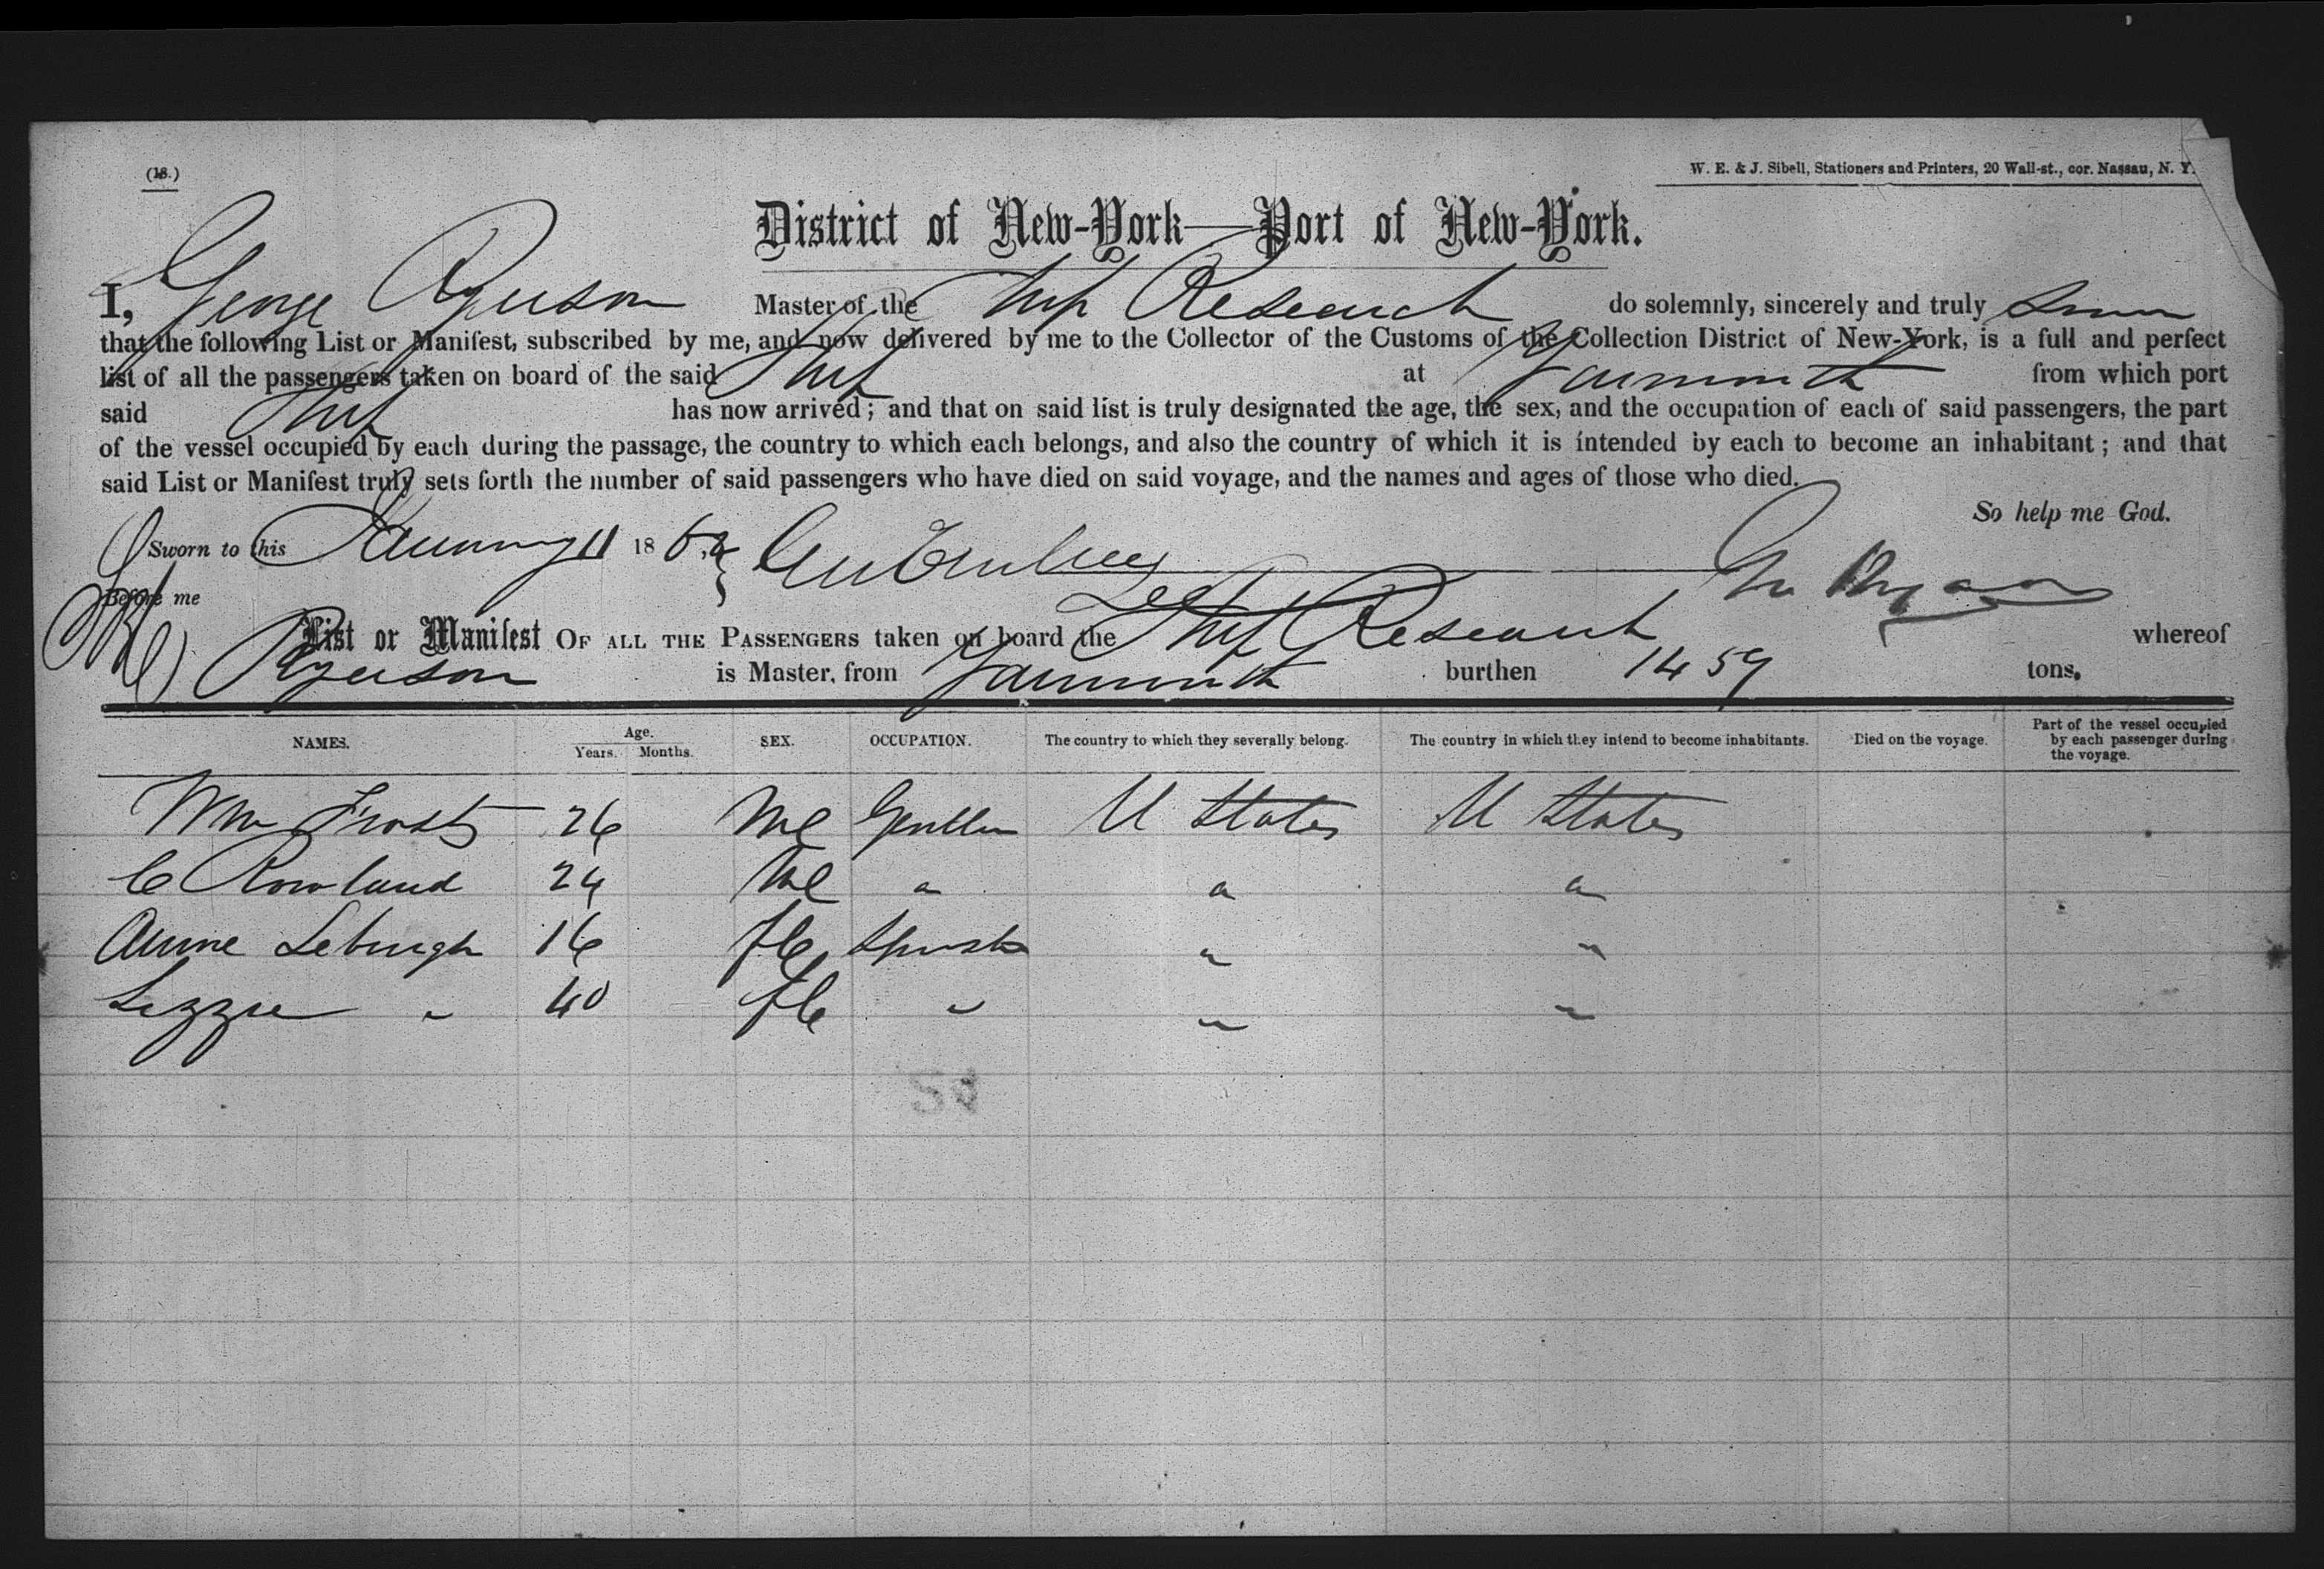 (18.)
W. E. & J. Sibell, Stationers and Printers, 20 Wall-st., cor. Nassau, N. Y.
District of New-York—Port of New-York.
I, George Ryerson Master of the Ship Research do solemnly, sincerely and truly
that the following List or Manifest, subscribed by me, and now delivered by me to the Collector of the Customs of the Collection District of New-York, is a full and perfect
list of all the passengers taken on board of the said Ship at Yarmouth from which port
said Ship has now arrived; and that on said list is truly designated the age, the sex, and the occupation of each of said passengers, the part
of the vessel occupied by each during the passage, the country to which each belongs, and also the country of which it is intended by each to become an inhabitant; and that
said List or Manifest truly sets forth the number of said passengers who have died on said voyage, and the names and ages of those who died.
So help me God.
Sworn to this January 11 186
Before me
List or Manifest OF ALL THE PASSENGERS taken on board the Ship Research whereof
Ryerson is Master, from Yarmouth burthen 1459 tons.
NAMES. Age. Years. Months. SEX. OCCUPATION. The country to which they severally belong. The country in which they intend to become inhabitants. Died on the voyage. Part of the vessel occupied by each passenger during the voyage.
Wm Frost 26 Me Gentlm U States U States
C Rowland 24 Me " " "
Annie Leburgh 16 Fe Spinster " "
Lizzie " 40 Fe " " "